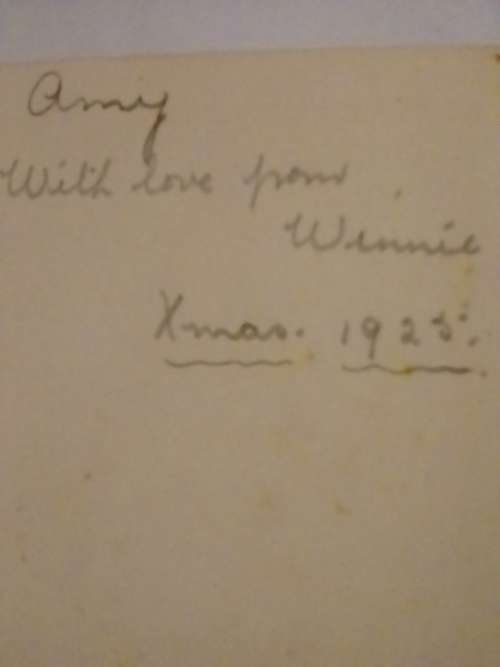 Amy
With love from
Winnie
Xmas. 1925.